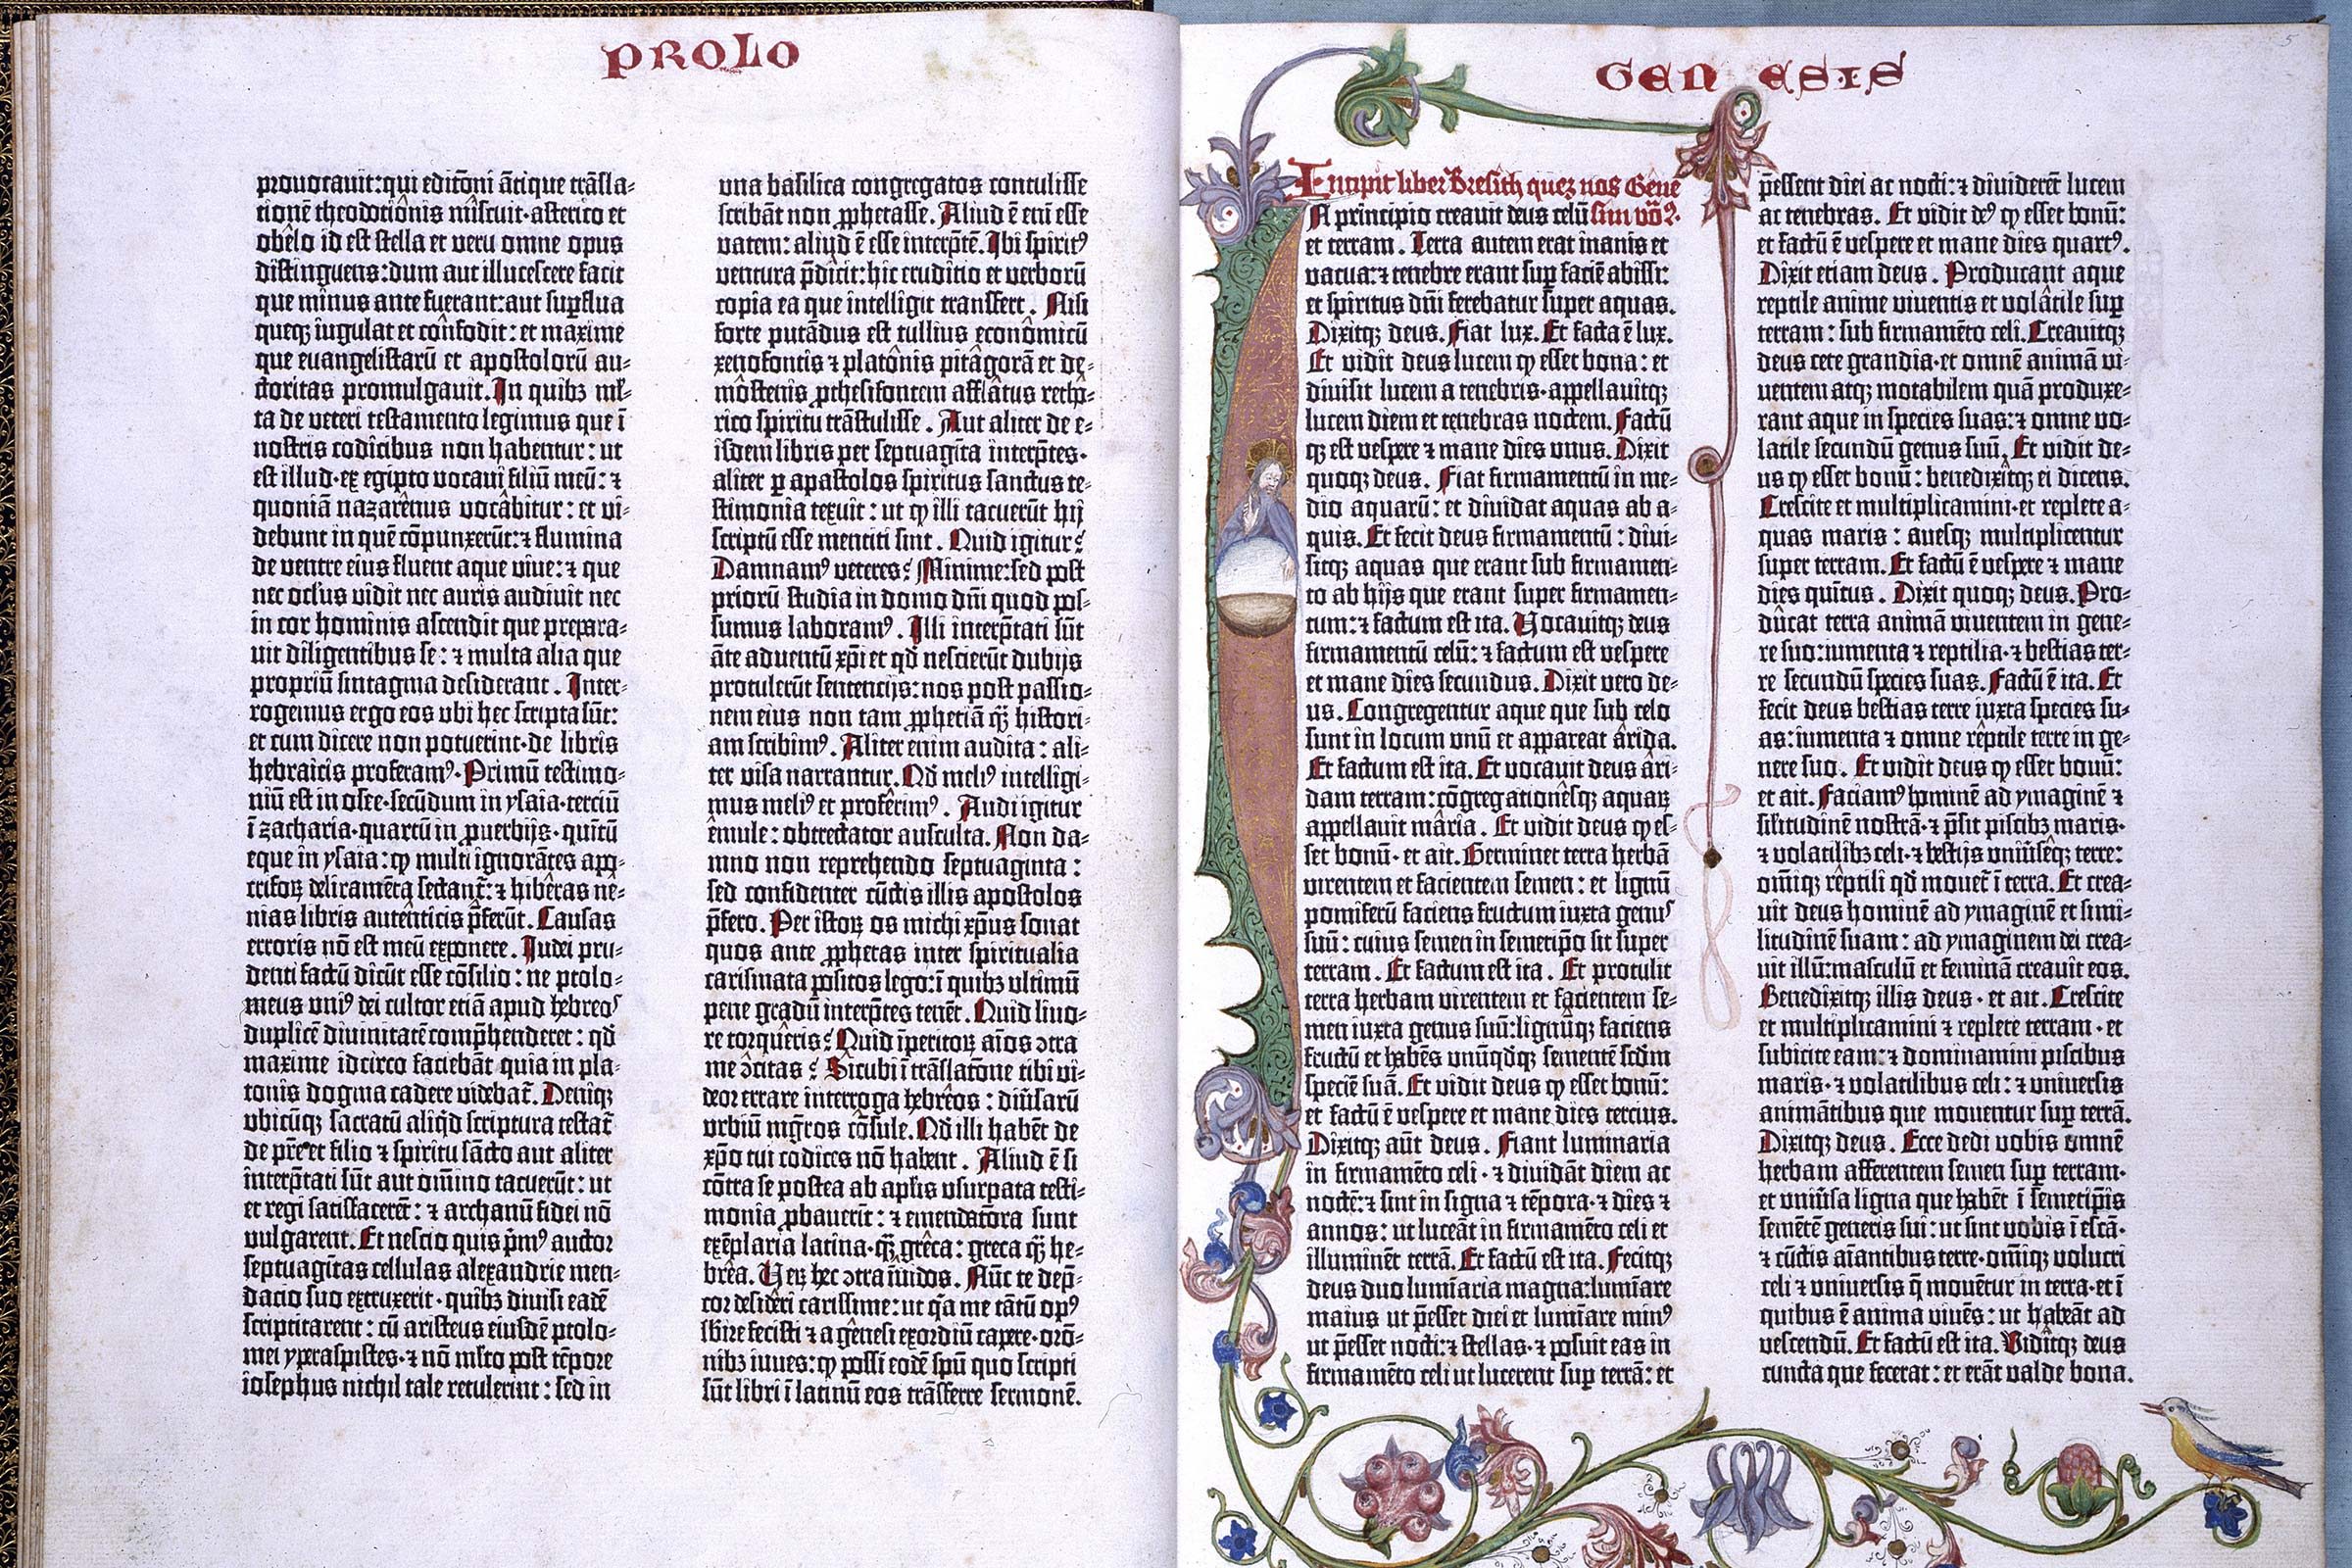 PROLO
prouocauit:qui editōni ātique trāsla-
tionē theodotiōnis miscuit·asterico et
obelo id est stella et veru omne opus
distinguens:dum aut illucescere facit
que minus ante fuerant:aut suꝑflua
queqꝫ iugulat et confodit: et maxime
que euangelistarū et apostolorū au-
ctoritas promulgauit. In quibꝫ ml̄-
ta de veteri testamento legimus que ī
nostris codicibus non habentur: ut
est illud·ex egipto vocaui filiū meū: ⁊
quoniā nazarenus vocabitur: et vi-
debunt in quē cōpunxerūt:⁊ flumina
de ventre eius fluent aque viue:⁊ que
nec oclꝰs vidit nec auris audiuit nec
in cor hominis ascendit que prepara-
uit diligentibus se: ⁊ multa alia que
propriū sintagma desiderant. Inter-
rogemus ergo eos vbi hec scripta sūt:
et cum dicere non potuerint·de libris
hebraicis proferamꝰ·Primū testimo-
niū est in osee·secūdum in ysaia·terciū
ī zacharia·quartū in ꝓuerbijs·quītū
eque in ysaia:ꝙ multi ignorātes apo-
crifoꝝ deliramēta sectant̄:⁊ hiberas ne-
nias libris autenticis p̄ferūt. Causas
erroris nō est meū exponere. Iudei pru-
denti factū dicūt esse cōsilio: ne ptolo-
meus vniꝰ dei cultor etiā apud hebreoſ
duplicē diuinitatē comp̄henderet: qd̄
maxime idcirco faciebāt quia in pla-
tonis dogma cadere videbat̄. Deniqꝫ
vbicūqꝫ sacratū aliq̄d scriptura testat̄
de pr̄e et filio ⁊ spiritu sācto aut aliter
interp̄tati sūt aut om̄ino tacuerūt: ut
et regi satisfacerēt: ⁊ archanū fidei nō
vulgarent. Et nescio quis p̄mꝰ auctor
septuagītas cellulas alexandrie men-
dacio suo extruxerit·quibꝫ diuisi eadē
scriptitarent: cū aristeus eiusdē ptolo-
mei yperaspistes·⁊ nō ml̄to post tēpore
iosephus nichil tale retulerint: sed in
vna basilica congregatos contulisse
scribāt non ꝓphetasse. Aliud ē eni esse
vatem: aliud ē esse interp̄tē. Ibi spiritꝰ
ventura p̄dicit:hic eruditio et verborū
copia ea que intelligit transfert. Nisi
forte putādus est tullius economicū
xenofontis ⁊ platonis pitagorā et de-
mostenis ꝓthesifontem afflatus retho-
rico spiritu trāstulisse. Aut aliter de e-
isdem libris per septuagīta interp̄tes·
aliter ꝑ apostolos spiritus sanctus te-
stimonia texuit: ut ꝙ illi tacuerūt hij
scriptū esse mentiti sint. Quid igitur?
Damnamꝰ veteres? Minime:sed post
priorū studia in domo dn̄i quod pos-
sumus laboramꝰ. Illi interp̄tati sūt
āte aduentū xp̄i et qd̄ nescierūt dubijs
protulerūt sentencijs:nos post passio-
nem eius non tam ꝓphetiā q̄ȝ histori-
am scribimꝰ. Aliter enim audita: ali-
ter visa narrantur. Qd̄ meliꝰ intelligi-
mus meliꝰ et proferimꝰ. Audi igitur
emule: obtrectator ausculta. Non da-
mno non reprehendo septuaginta:
sed confidenter cūctis illis apostolos
p̄fero. Per istoꝝ os michi xp̄us sonat
quos ante ꝓphetas inter spiritualia
carismata positos lego:ī quibꝫ vltimū
pene gradū interp̄tes tenēt. Quid liuo-
re torqueris? Quid īperitoꝝ aīos ↄtra
me ↄcitas? Sicubi ī trāslatōne tibi vi-
deor errare interroga hebreos: diūsarū
vrbiū mg̃ros cōsule. Qd̄ illi habēt de
xp̄o tui codices nō habent. Aliud ē si
cōtra se postea ab apl̄is vsurpata testi-
monia ꝓbauerīt: ⁊ emendatōra sunt
exēplaria latina·q̄ȝ greca: greca q̄ȝ he-
brea. Veꝝ hec ↄtra īuidos. Nūc te dep̄-
cor desideri carissime:ut q̄a me tātū opꝰ
sbire fecisti ⁊ a genesi exordiū capere·orō-
nibꝫ iuues:ꝙ possī eodē spū quo scripti
sūt libri ī latinū eos trāsferre sermonē.
GENESIS
Incipit liber Bresith quez nos Gene
IN principio creauit deus celū sim vōꝯ.
et terram. Terra autem erat inanis et
vacua:⁊ tenebre erant suꝑ faciē abissi:
et spiritus dn̄i ferebatur super aquas.
Dixitqꝫ deus. Fiat lux. Et facta ē lux.
Et vidit deus lucem ꝙ esset bona: et
diuisit lucem a tenebris·appellauitqꝫ
lucem diem et tenebras noctem. Factū
qꝫ est vespere ⁊ mane dies vnus. Dixit
quoqꝫ deus. Fiat firmamentū in me-
dio aquarū: et diuidat aquas ab a-
quis. Et fecit deus firmamentū: diui-
sitqꝫ aquas que erant sub firmamen-
to ab hijs que erant super firmamen-
tum:⁊ factum est ita. Vocauitqꝫ deus
firmamentū celū: ⁊ factum est vespere
et mane dies secundus. Dixit vero de-
us. Congregentur aque que sub celo
sunt in locum vnū et appareat arida.
Et factum est ita. Et vocauit deus ari-
dam terram: cōgregationesqꝫ aquaꝝ
appellauit maria. Et vidit deus ꝙ es-
set bonū· et ait. Germinet terra herbā
virentem et facientem semen: et lignū
pomiferū faciens fructum iuxta genuſ
suū: cuius semen in semetip̄o sit super
terram. Et factum est ita. Et protulit
terra herbam virentem et facientem se-
men iuxta genus suū:lignūqꝫ faciens
fructū et habēs vnūqd̄qꝫ sementē scd̄m
speciē suā. Et vidit deus ꝙ esset bonū:
et factū ē vespere et mane dies tercius.
Dixitqꝫ aūt deus. Fiant luminaria
in firmamēto celi· ⁊ diuidāt diem ac
noctē:⁊ sint in signa ⁊ tēpora·⁊ dies ⁊
annos: ut luceāt in firmamēto celi et
illuminēt terrā. Et factū est ita. Fecitqꝫ
deus duo luminaria magna:lumīare
maius ut p̄esset diei et lumīare minꝰ
ut p̄esset nocti:⁊ stellas·⁊ posuit eas in
firmamēto celi ut lucerent suꝑ terrā: et
5
p̄essent diei ac nocti:⁊ diuiderēt lucem
ac tenebras. Et vidit deꝰ ꝙ esset bonū:
et factū ē vespere et mane dies quartꝰ.
Dixit etiam deus. Producant aque
reptile anime viuentis et volatile suꝑ
terram: sub firmamēto celi. Creauitqꝫ
deus cete grandia·et omnē animā vi-
uentem atqꝫ motabilem quā produxe-
rant aque in species suas:⁊ omne vo-
latile secundū genus suū. Et vidit de-
us ꝙ esset bonū: benedixitqꝫ ei dicens.
Crescite et multiplicamini·et replete a-
quas maris: auesqꝫ multiplicentur
super terram. Et factū ē vespere ⁊ mane
dies quītus. Dixit quoqꝫ deus. Pro-
ducat terra animā viuentem in gene-
re suo:iumenta ⁊ reptilia·⁊ bestias ter-
re secundū species suas. Factū ē ita. Et
fecit deus bestias terre iuxta species su-
as:iumenta ⁊ omne reptile terre in ge-
nere suo. Et vidit deus ꝙ esset bonū:
et ait. Faciamꝰ hominē ad ymaginē ⁊
sil̄itudinē nostrā·⁊ p̄sit piscibꝫ maris·
⁊ volatilibꝫ celi·⁊ bestijs vniūseqꝫ terre:
om̄iqꝫ reptili qd̄ mouet̄ ī terra. Et crea-
uit deus hominē ad ymaginē et simi-
litudinē suam: ad ymaginem dei crea-
uit illū:masculū et feminā creauit eos.
Benedixitqꝫ illis deus· et ait. Crescite
et multiplicamini ⁊ replete terram· et
subicite eam:⁊ dominamini piscibus
maris·⁊ volatilibus celi: ⁊ vniuersis
animātibus que mouentur suꝑ terrā.
Dixitqꝫ deus. Ecce dedi vobis omnē
herbam afferentem semen suꝑ terram·
et vniūsa ligna que habēt ī semetip̄is
sementē generis sui: ut sint vobis ī escā·
⁊ cūctis aīantibus terre·om̄iqꝫ volucri
celi ⁊ vniuersis q̄ mouētur in terra·et ī
quibus ē anima viuēs: ut habeāt ad
vescendū. Et factū est ita. Viditqꝫ deus
cuncta que fecerat: et erāt valde bona.